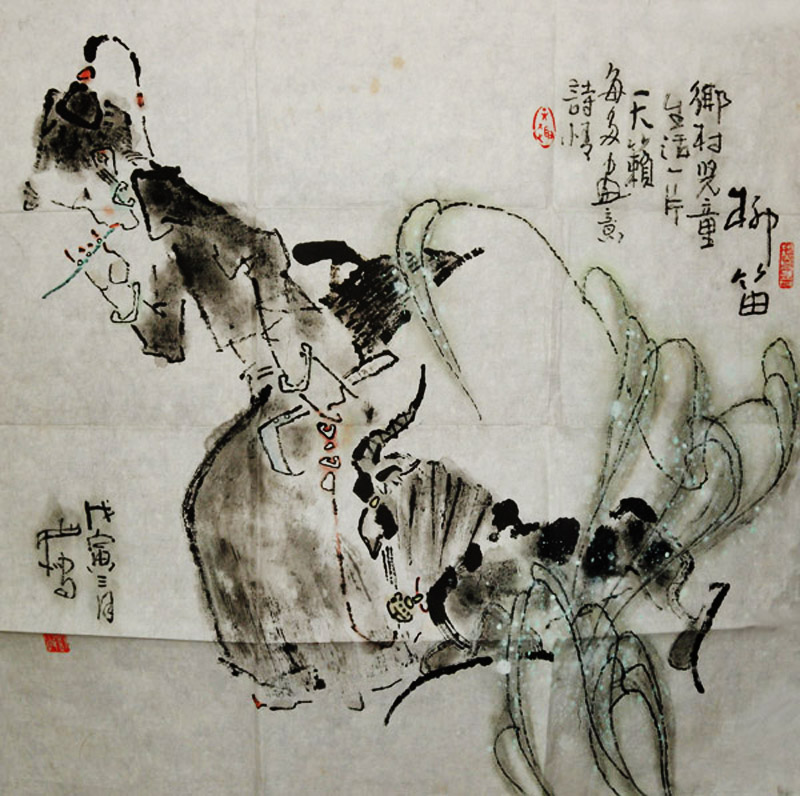 柳笛
鄉村児童
生活一片
天籟
每多畫意
詩情
戊寅三月